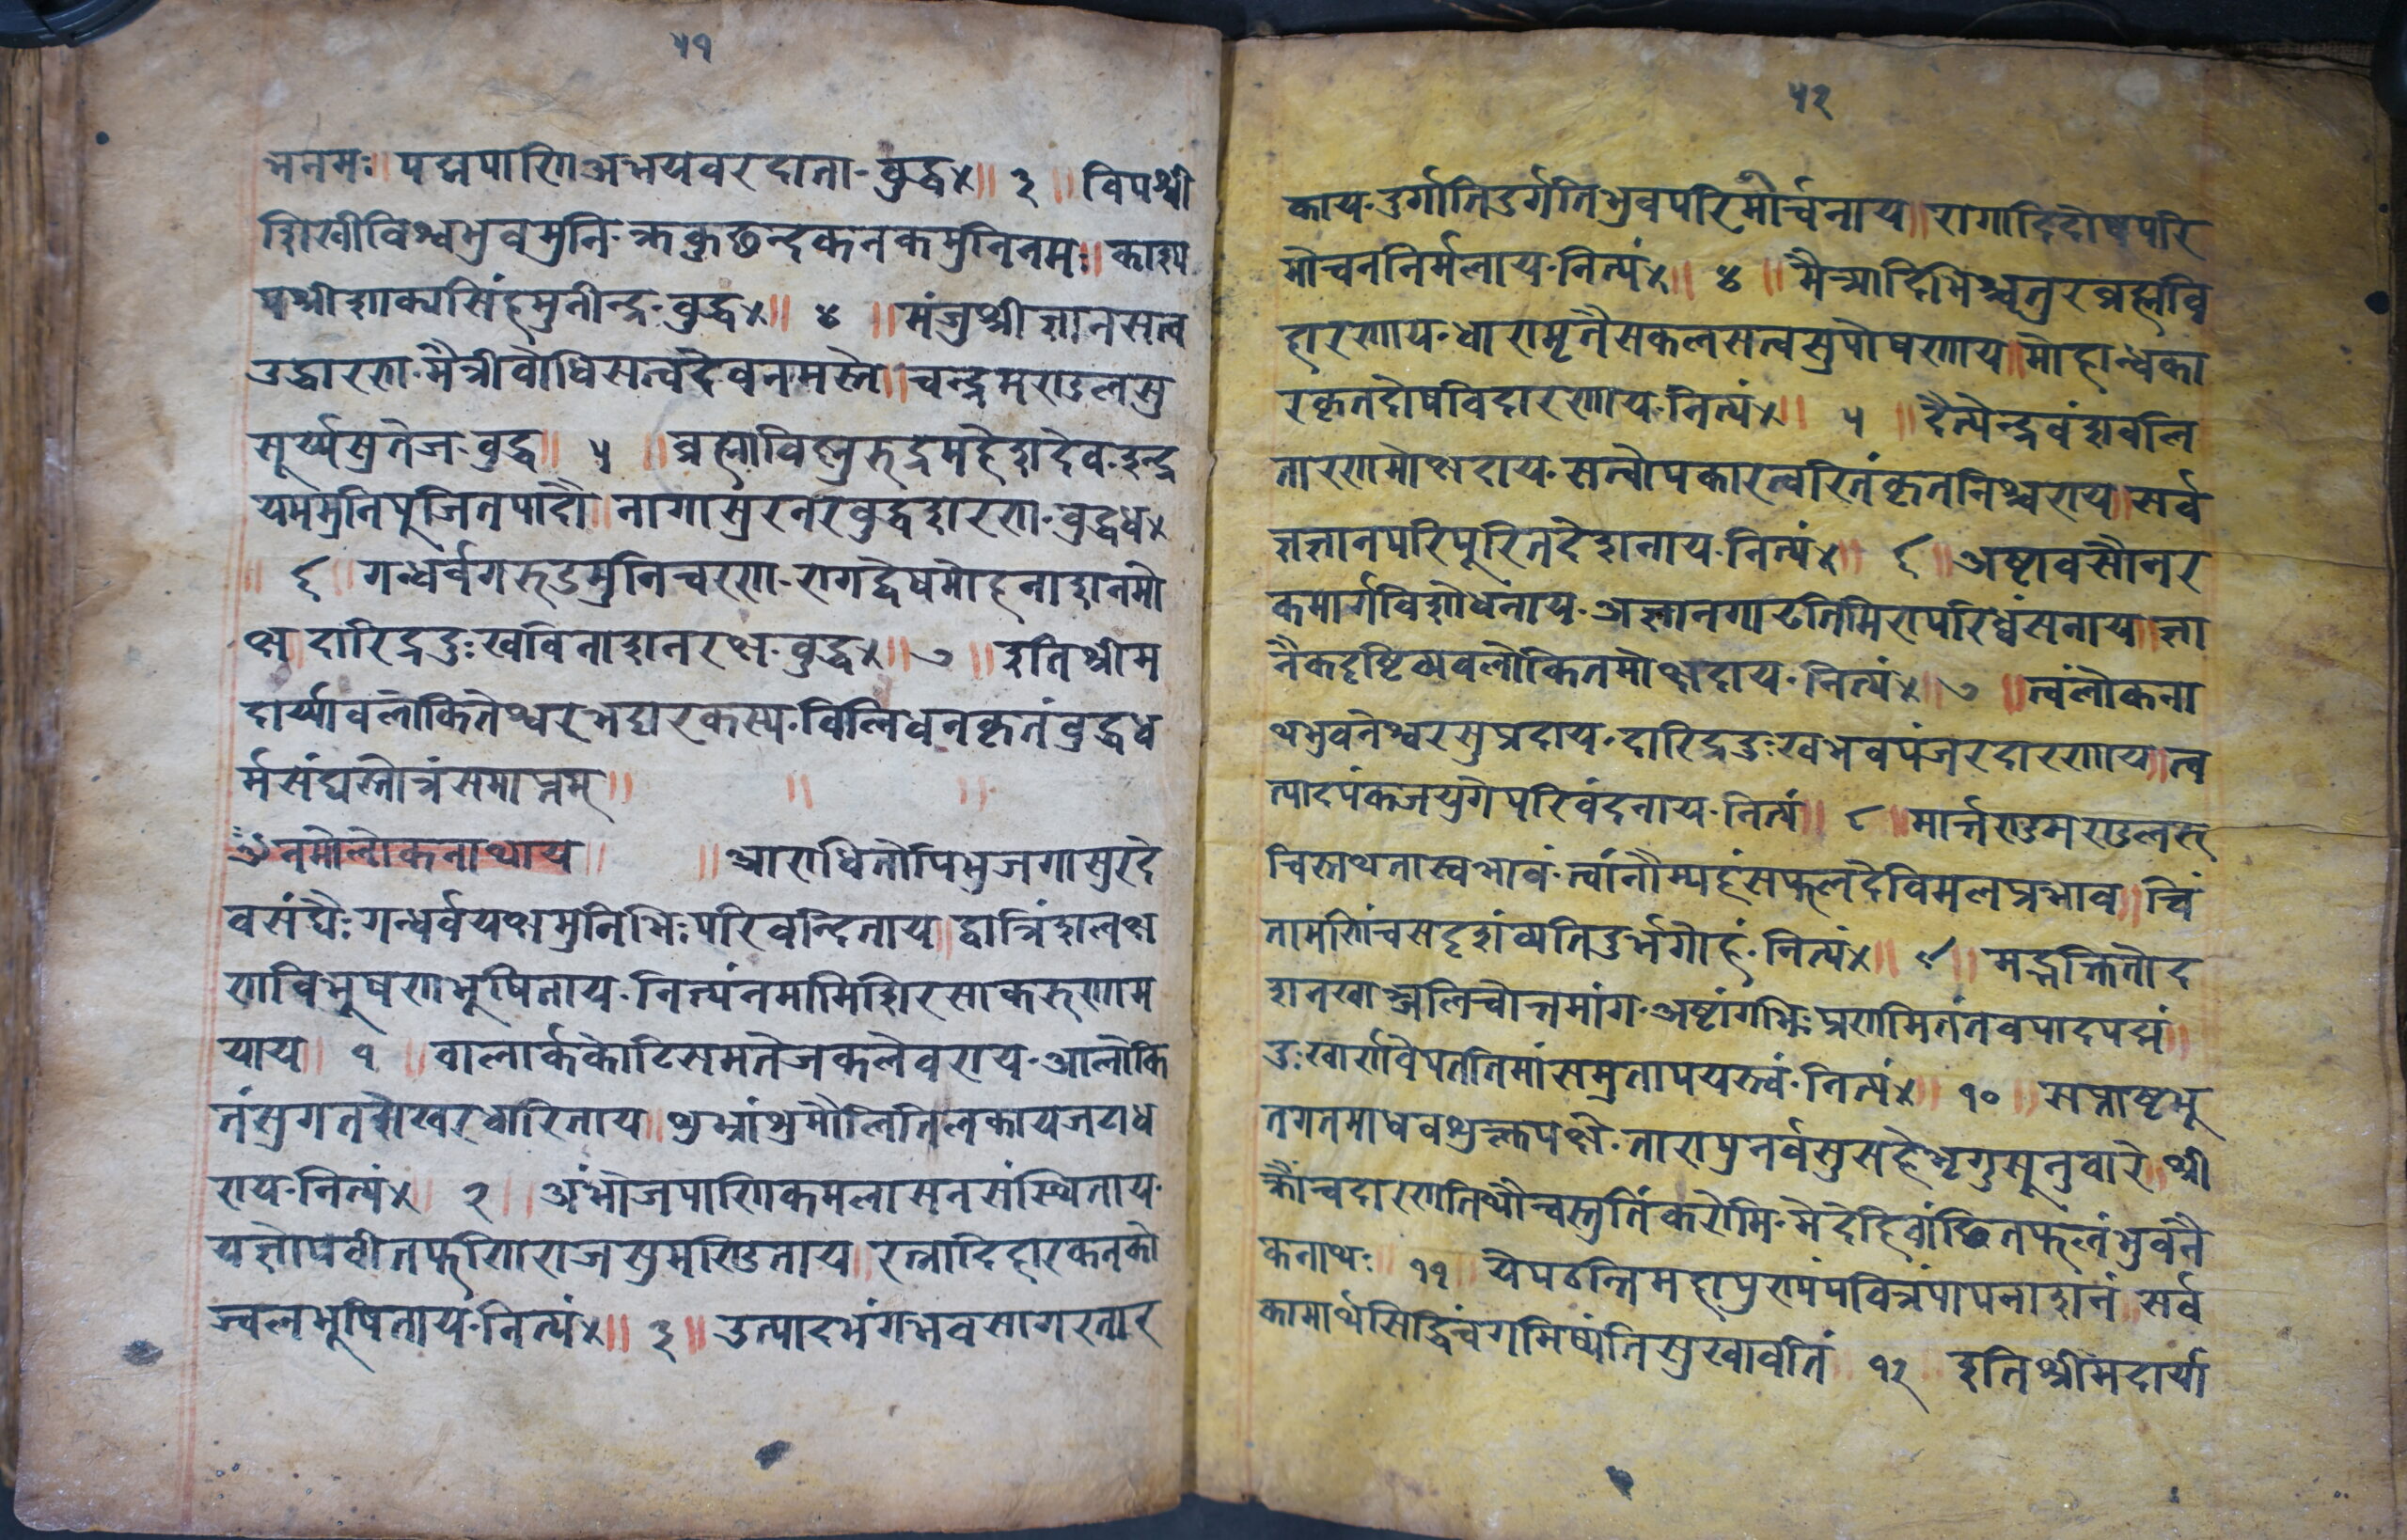 ५१
भनमः॥ पद्मपाणिअभयवरदाता॰बुद्ध४॥ ३ ॥ विपश्वी
शिखीविश्वभुवमुनि॰क्रकुछन्दकनकमुनिनमः॥काश्य
पश्रीशाक्यसिंहमुनीन्द्र॰बुद्ध४॥ ४ ॥ मंजुश्रीज्ञानसत्व
उद्धारण॰मैत्रीबोधिसत्वदेवनमस्ते॥चन्द्रमण्डलसु
सूर्य्यसुतेज॰बुद्ध॥ ५ ॥ब्रह्माविष्णुरुद्रमहेशदेव॰इन्द्र
यममुनिपुजितपादौ॥नागासुरनरबुद्धशरण॰बुद्धध४
॥ ६ ॥गन्धर्वगरुडमुनिचरण॰रागद्वेषमोहनाशनमो
क्ष॥दारिद्रदुःखविनाशनरक्ष॰बुद्ध४॥ ७ ॥इतिश्रीम
दार्य्यावलोकितेश्वरभट्टारकस्य॰विलिधनकृतंबुद्धध
र्मसंघस्तोत्रंसमाप्तम्॥ ॥ ॥
ॐनमोलोकनाथाय॥ ॥आराधितोपिभुजगासुरदे
वसंघैः॰गन्धर्वयक्षमुनिभिःपरिवन्दिताय॥द्वात्रिंशलक्ष
णविभुषणभूषिताय॰नित्यंनमामिशिरसाकरुणाम
याय॥ १ ॥बालार्ककोटिसमतेजकलेवराय॰आलोकि
तंसुगतशेखरधारिताय॥शुभ्रांशुमौलितिलकायजटाध
राय॰नित्यं४॥ २ ॥अंभोजपाणिकमलासनसंस्थिताय॰
यज्ञोपवीतफणिराजसुमण्डिताय॥रत्नादिहारकनको
ज्वलभूषिताय॰नित्यं४॥ ३॥उत्पादभंगभवसागरतार
५२
काय॰दुर्गातिदुर्गतिभुवपरिमोर्चनाय॥रागादिदोषपरि
मोचननिर्मलाय॰नित्यं४॥ ४ ॥मैत्र्यादिभिश्चतुरब्रह्मवि
हारणाय॰धारामृतैसकलसत्वसुपोषणाय॥मोहान्धका
रकृतदोषविदारणाय॰नित्यं४॥ ५ ॥दैत्येन्द्रवंशवलि
तारणमोक्षदाय॰सत्वोपकारत्वरितंकृतनिश्चराय॥सर्व
ज्ञज्ञानपरिपुरितदेशनाय॰नित्यं४॥ ६ ॥अष्टावसौनर
कमार्गविशोधनाय॰अज्ञानगाढतिमिरापरिध्वंसनाय॥ज्ञा
नैकदृष्टिव्यवलोकितमोक्षदाय॰नित्यं४॥ ७ ॥त्वंलोकना
थभुवनेश्वरसुप्रदाय॰दारिद्रदुःखभवपंजरदारणाय॥त्व
त्पादपंकजयुगेपरिवंदनाय॰नित्यं॥ ८ ॥मार्त्तण्डमण्डलरु
चिस्तथतास्वभावं॰त्वांनौम्यहंसफलदेविमलप्रभाव॥चिं
तामणिंचसदृशंव्यतिदुर्भगोहं॰नित्यं४॥ ९ ॥मद्भक्तितोद
शनखाञ्जलिचोत्तमांग॰अष्टांगभिःप्रणमितंतवपादपद्मं॥
दुःखार्णवेपततिमांसमुतापयस्त्वं॰नित्यं४॥ १० ॥सप्ताष्टभू
तगतमाधवशुक्लपक्षे॰तारापुनर्वसुसहेभृगुसूनुवारे॥श्री
क्रौंन्चदारणतिथौन्चस्तुतिंकरोमि॰मेदेहिवांछितफलंभुवने
कनाथः॥ ११ ॥येपठन्तिमहापुण्यंपवित्रंपापनाशनं॥सर्व
कामार्थसिद्धिंचगमिष्यंतिसुखावतिं॥१२ ॥इतिश्रीमदार्या